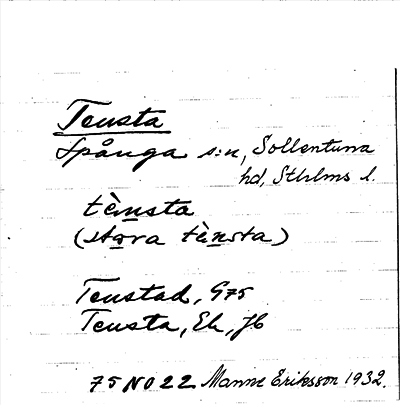 Tensta
Spånga s:n, Sollentuna
hd, Sthlms l.
tènsta
(stora tènsta)
Tenstad, G75
Tensta, Ek, Jb
75 NO 22 Manne Eriksson 1932.